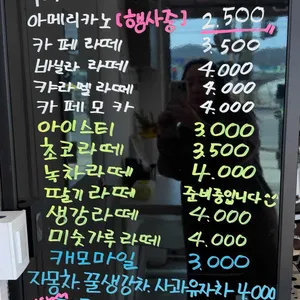 아메리카노 (행사중) 2.500
카페 라떼 3.500
바닐라 라떼 4.000
캬라멜 라떼 4.000
카페 모카 4.000
아이스티 3.000
초코 라떼 3.500
녹차 라떼 4.000
딸기 라떼 준비중입니다
생강 라떼 4.000
미숫가루 라떼 4.000
캐모마일 3.000
자몽차. 꿀생강차. 사과유자차 4.000